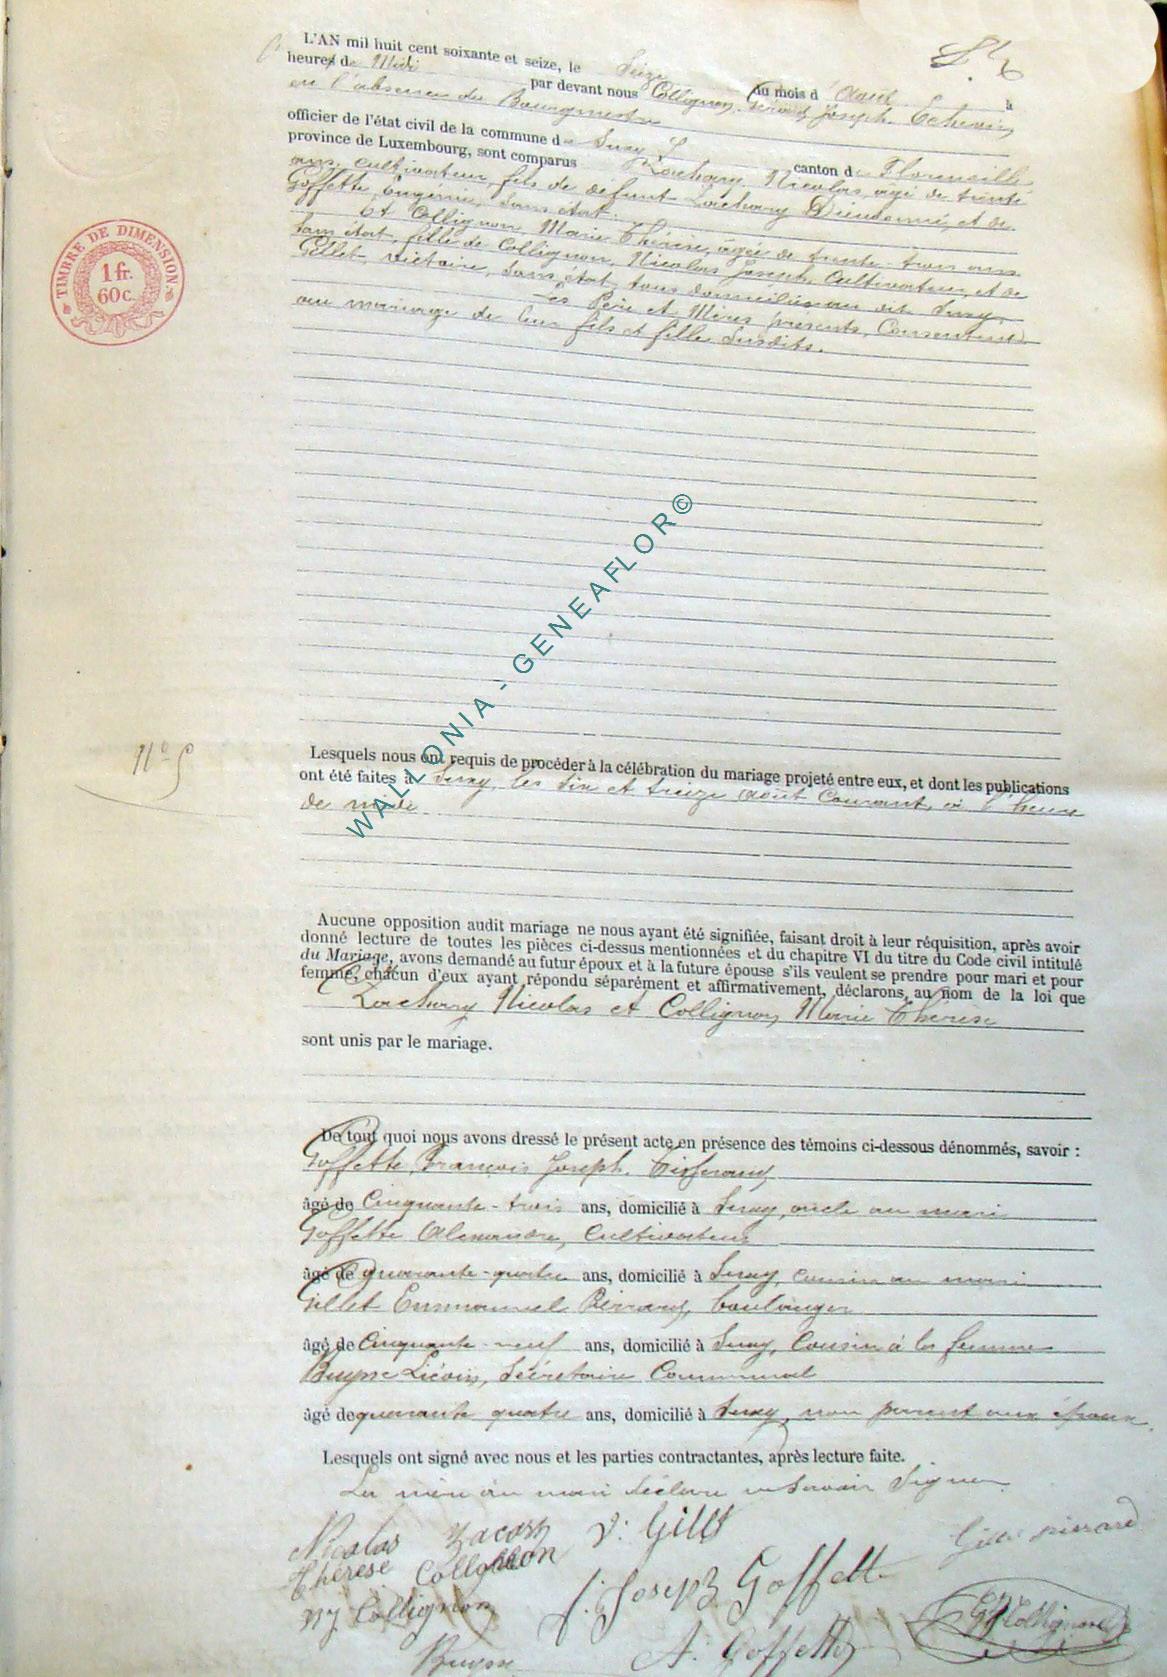 L'AN mil huit cent soixante et seize, le Seize du mois d Août à
heures de Midi par devant nous Collignon, Gérard Joseph Echevin,
en l'absence du Bourgmestre
officier de l'état civil de la commune de Suxy canton de Florenville
province de Luxembourg, sont comparus Zachary Nicolas, âgé de trente
ans, cultivateur, fils de défunt Zachary Dieudonné, et de
Goffette, Eugénie, sans état.
Et Collignon Marie Thérèse, âgée de trente-trois ans
sans état, fille de Collignon, Nicolas Joseph, Cultivateur, et de
Gillet, Victoire, sans état, tous domiciliés au dit Suxy,
Les Père et Mères présents, Consentent
au mariage de leur fils et fille susdits.
TIMBRE DE DIMENSION
1 fr.
60 c.
WALLONIA - GENEAFLOR©
N° 5
Lesquels nous ont requis de procéder à la célébration du mariage projeté entre eux, et dont les publications
ont été faites à Suxy, les six et treize août courant, à l'heure
de midi
Aucune opposition audit mariage ne nous ayant été signifiée, faisant droit à leur réquisition, après avoir
donné lecture de toutes les pièces ci-dessus mentionnées et du chapitre VI du titre du Code civil intitulé
du Mariage, avons demandé au futur époux et à la future épouse s'ils veulent se prendre pour mari et pour
femme, chacun d'eux ayant répondu séparément et affirmativement, déclarons, au nom de la loi que
Zachary Nicolas et Collignon Marie Thérèse
sont unis par le mariage.
De tout quoi nous avons dressé le présent acte en présence des témoins ci-dessous dénommés, savoir :
Goffette, François Joseph, Tisserand,
âgé de Cinquante-trois ans, domicilié à Suxy, oncle au mari
Goffette Alexandre, Cultivateur
âgé de quarante-quatre ans, domicilié à Suxy, cousin au mari
Gillet Emmanuel Pierrard, boulanger
âgé de Cinquante-neuf ans, domicilié à Suxy, Cousin à la femme
Buysse Liévin, Secrétaire Communal
âgé de quarante quatre ans, domicilié à Suxy, non parent aux époux.
Lesquels ont signé avec nous et les parties contractantes, après lecture faite.
La mère du mari déclare ne savoir signer
Nicolas Zacary V. Gillet
Thérèse Collignon pierrard
NJ Collignon f. Joseph Goffette
Buysse A. Goffette GJ Collignon